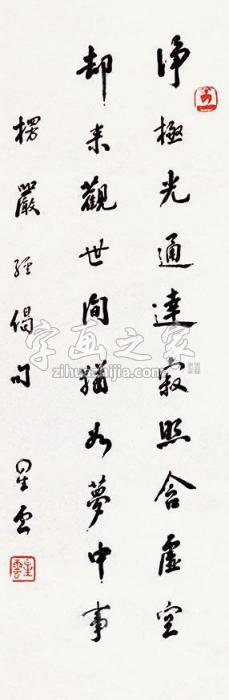 淨極光通達寂照含虛空
却來觀世間猶如夢中事
楞嚴經偈句 星雲
星雲
字画之家
zihuazhijia.com